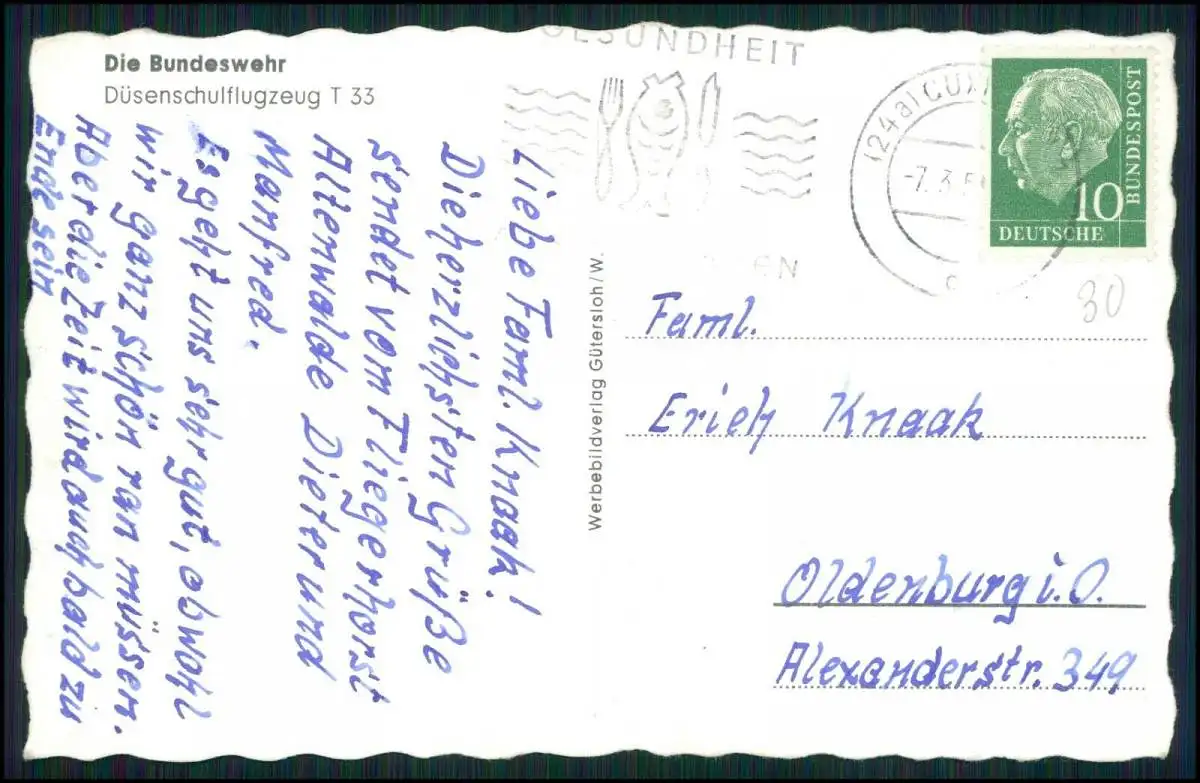 Die Bundeswehr
Düsenschulflugzeug T 33
Liebe Faml. Knaak!
Die herzlichsten Grüße
sendet vom Fliegerhorst
Altenwalde Dieter und
Manfred.
Es geht uns sehr gut, obwohl
wir ganz schön ran müssen.
Aber die Zeit wird auch bald zu
Ende sein
Werbebildverlag Gütersloh/W.
GESUNDHEIT
(24a) CUX
-7.3.5
DEUTSCHE
BUNDESPOST
10
30
Faml.
Erich Knaak
Oldenburg i.O.
Alexanderstr. 349